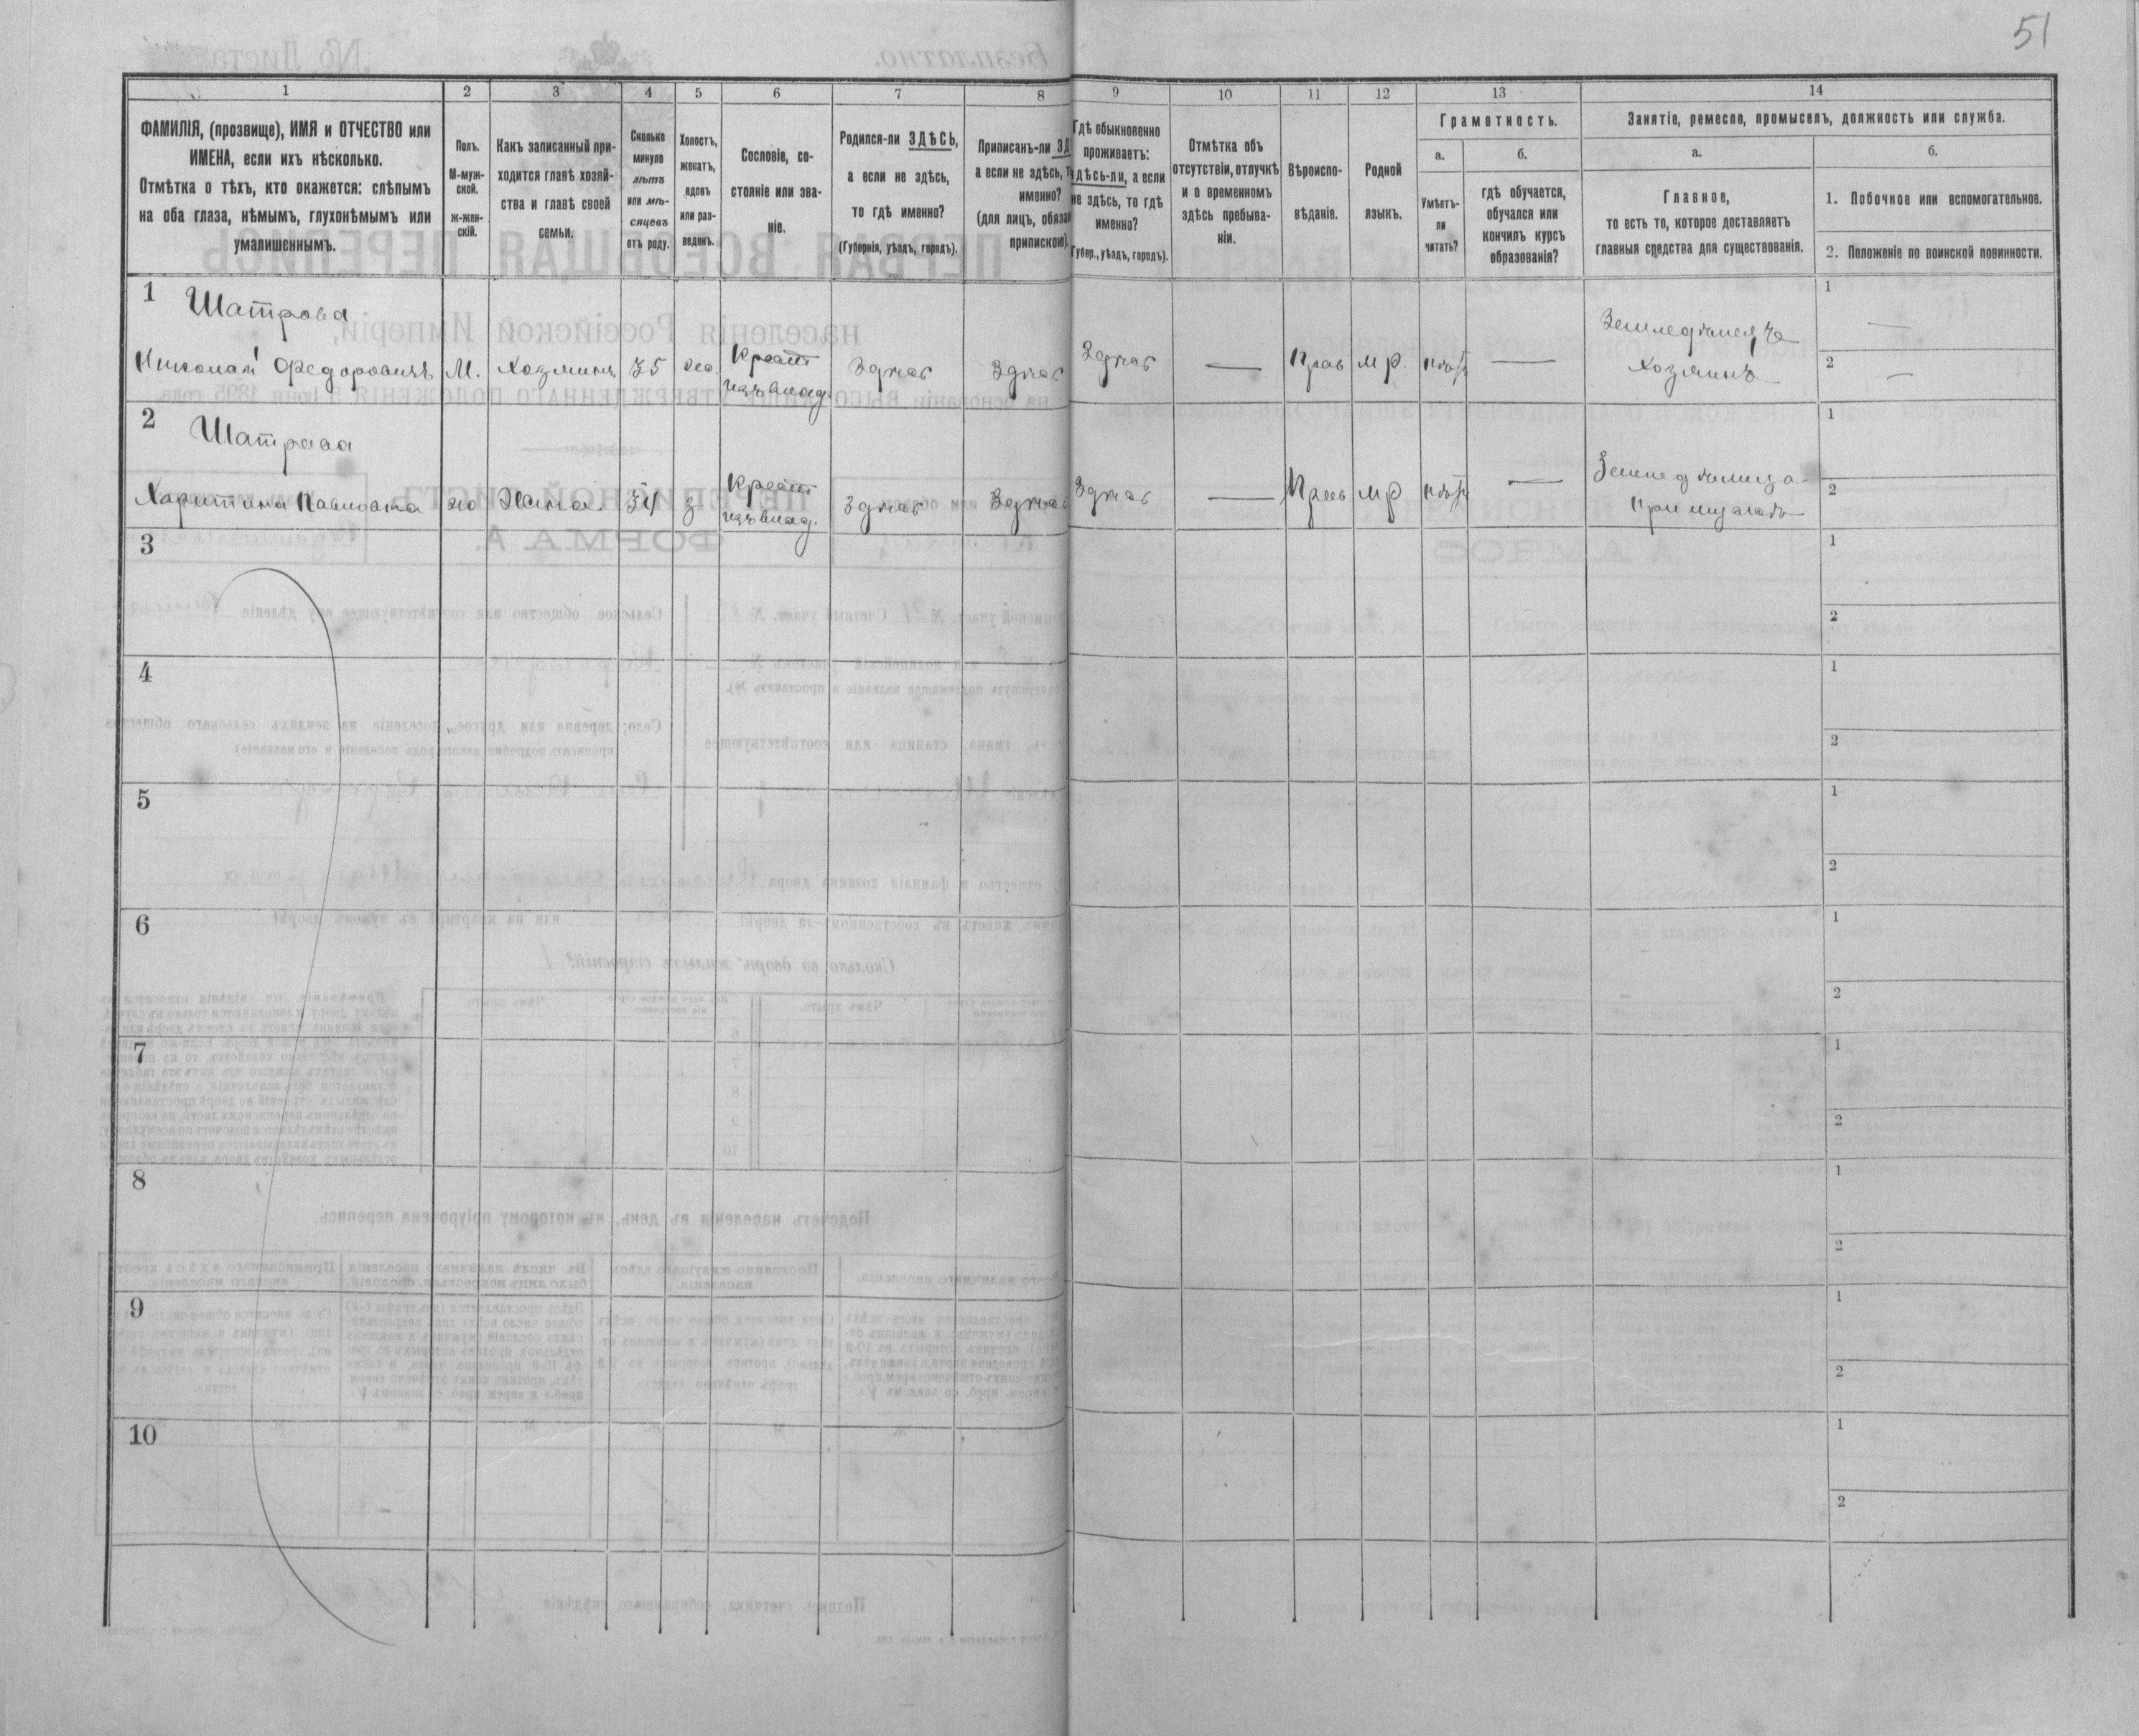 51
1 2 3 4 5 6 7 8 9 10 11 12 13 14
ФАМИЛІЯ, (прозвище), ИМЯ и ОТЧЕСТВО или
ИМЕНА, если ихъ нѣсколько.
Отмѣтка о тѣхъ, кто окажется: слѣпымъ
на оба глаза, нѣмымъ, глухонѣмымъ или
умалишеннымъ.
Полъ.
М-муж-
ской.
ж-жен-
скій.
Какъ записанный при-
ходится главѣ хозяй-
ства и главѣ своей
семьи.
Сколько
минуло
лѣтъ
или мѣ-
сяцевъ
отъ роду.
Холостъ,
женатъ,
вдовъ
или раз-
веденъ.
Сословіе, со-
стояніе или зва-
ніе.
Родился-ли ЗДѢСЬ,
а если не здѣсь,
то гдѣ именно?
(Губернія, уѣздъ, городъ).
Приписанъ-ли ЗД
а если не здѣсь, т
именно?
(для лицъ, обяза
припискою)
Гдѣ обыкновенно
проживаетъ:
здѣсь-ли, а если
не здѣсь, то гдѣ
именно?
Губер., уѣздъ, городъ).
Отмѣтка объ
отсутствіи, отлучкѣ
и о временномъ
здѣсь пребыва-
ніи.
Вѣроиспо-
вѣданіе.
Родной
языкъ.
Грамотность.
а.
Умѣетъ-
ли
читать?
б.
гдѣ обучается,
обучался или
кончилъ курсъ
образованія?
Занятіе, ремесло, промыселъ, должность или служба.
а.
Главное,
то есть то, которое доставляетъ
главныя средства для существованія.
б.
1. Побочное или вспомогательное.
2. Положеніе по воинской повинности.
1 Шатрова Земледѣлецъ 1 —
Николай Федоровичъ М. Хозяинъ 75 Крест. Здѣсь Здѣсь Здѣсь — Прав М р. — Хозяинъ 2 —
изъ влад.
2 Шатрова Земледѣлица 1
Харитина Павловна жо Жена 74 Крест. Здѣсь Здѣсь Здѣсь — Прав М р — При мужѣ 2
изъ влад.
3 1
2
4 1
2
5 1
2
6 1
2
7 1
2
8 1
2
9 1
2
10 1
2